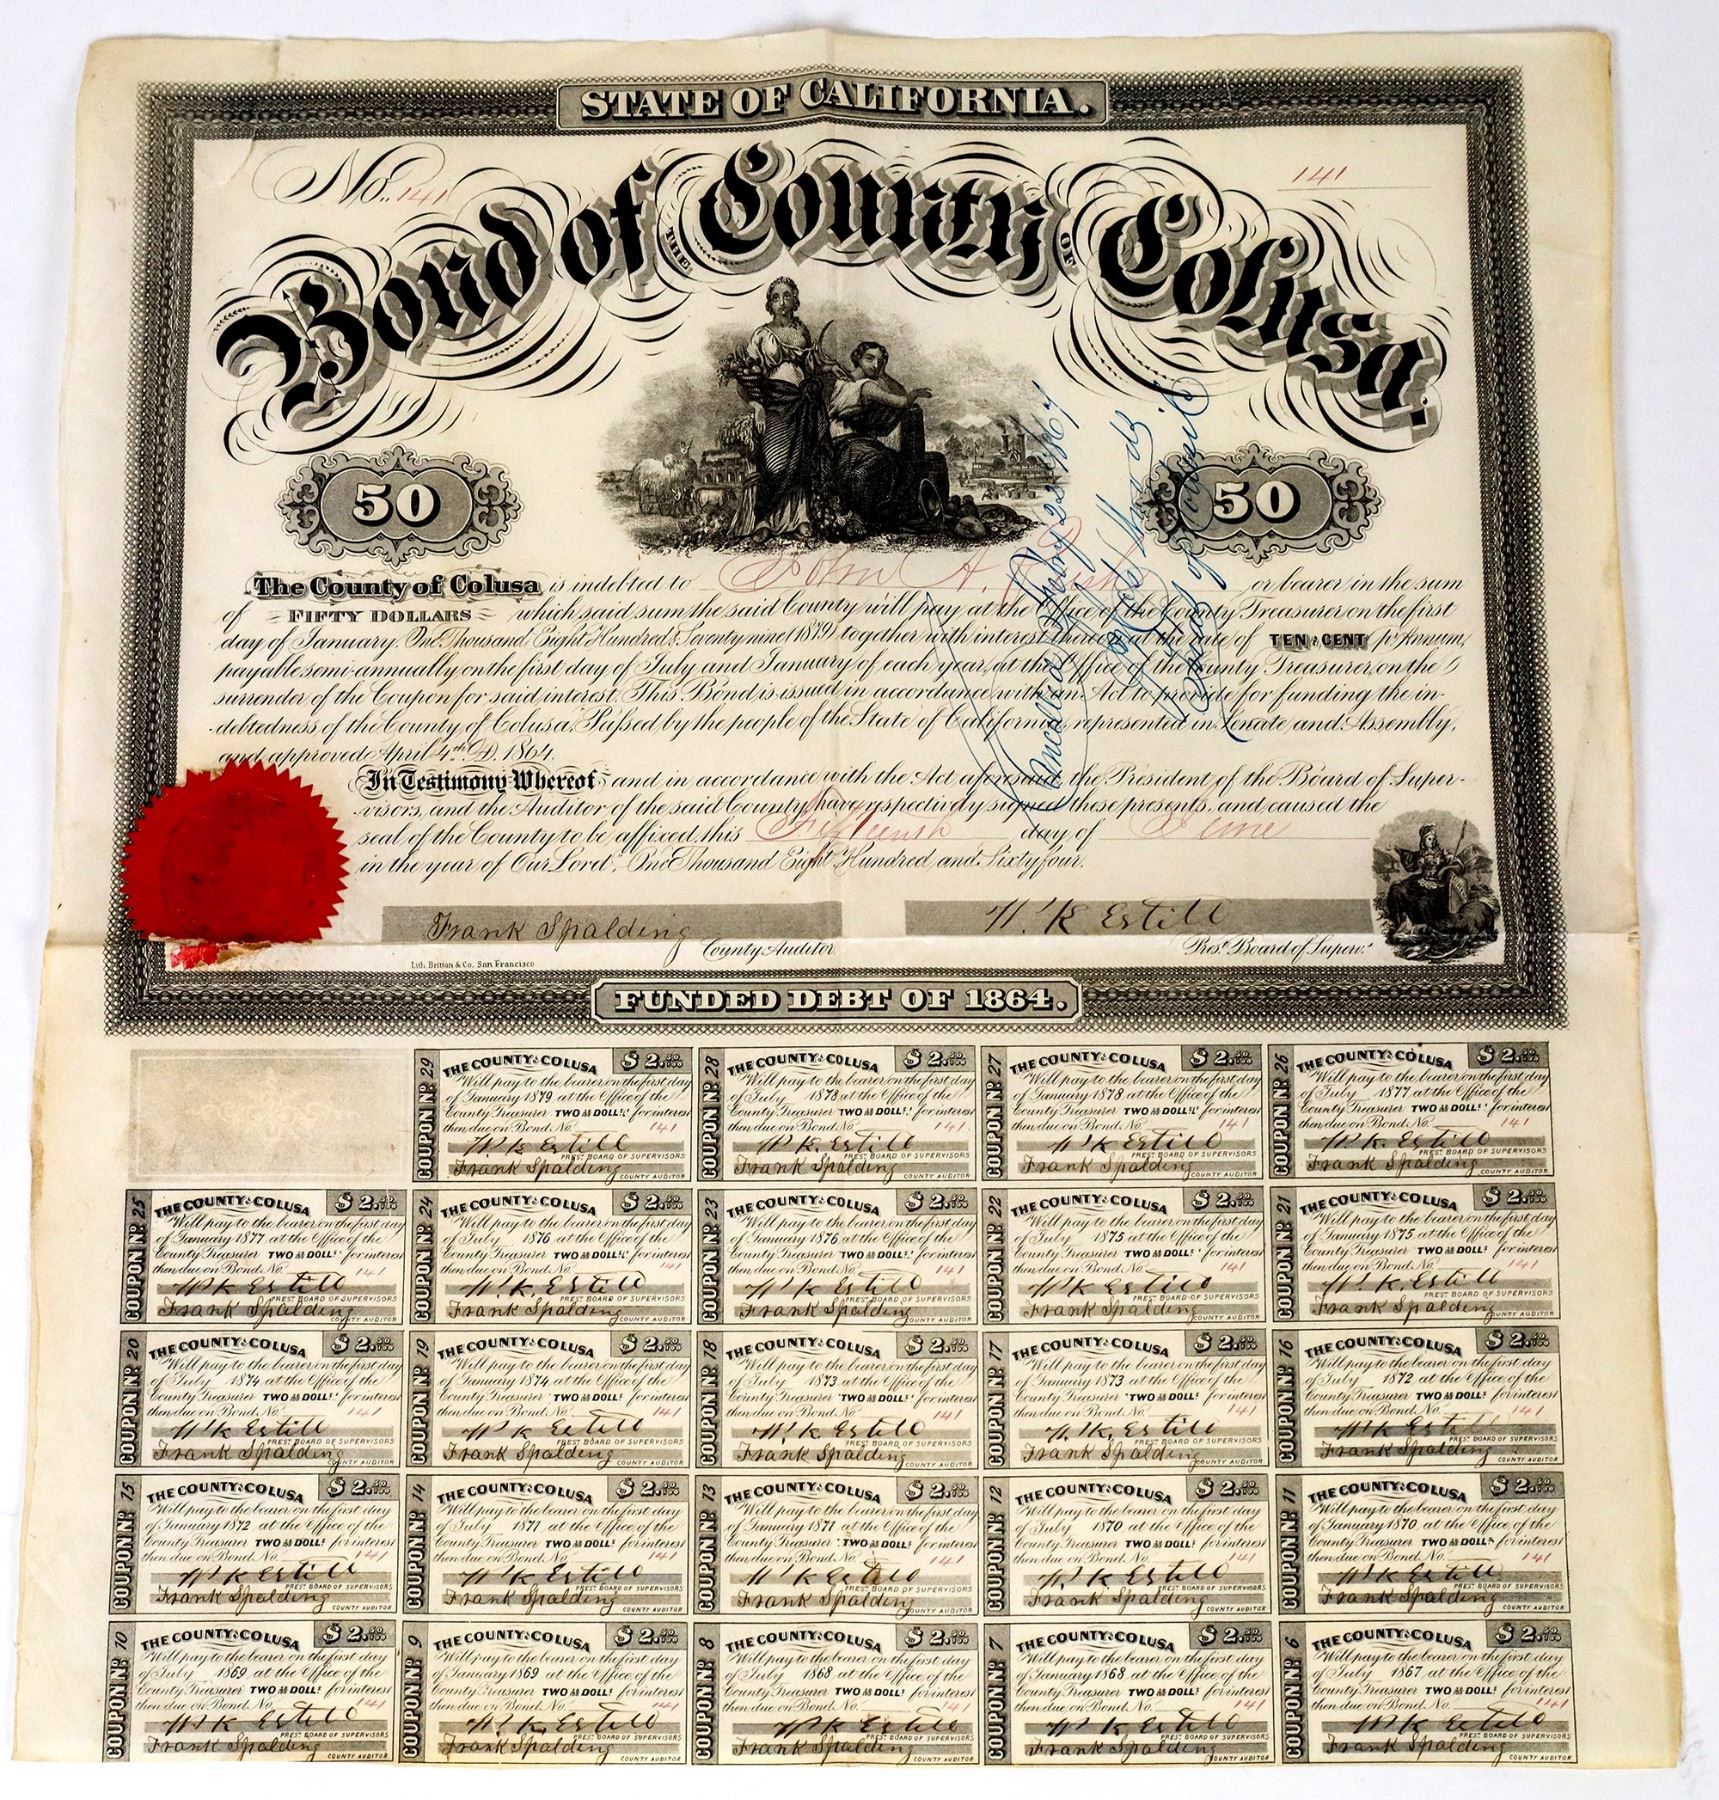 STATE OF CALIFORNIA.
No. 141
141
Bond of THE County OF Colusa.
50
50
The County of Colusa is indebted to John A. Rush or bearer in the sum
of FIFTY DOLLARS which said sum the said County will pay at the Office of the County Treasurer on the first
day of January, One Thousand Eight Hundred & Seventy nine (1879) together with interest thereon at the rate of TEN PR CENT pr Annum,
payable semi-annually on the first day of July and January of each year, at the Office of the County Treasurer, on the
surrender of the Coupon for said interest. This Bond is issued in accordance with an Act to provide for funding the in-
debtedness of the County of Colusa, Passed by the people of the State of California, represented in Senate and Assembly,
and approved April 4th A.D. 1864.
In Testimony Whereof, and in accordance with the Act aforesaid, the President of the Board of Super-
visors, and the Auditor of the said County, have respectively signed these presents, and caused the
seal of the County to be affixed this Fifteenth day of June
in the year of Our Lord, One Thousand Eight Hundred and Sixty four.
Frank Spalding
County Auditor.
W. K Estill
Prest. Board of Superv.
Lith. Britton & Co. San Francisco
Cancelled
1867
FUNDED DEBT OF 1864.
COUPON No. 29
THE COUNTY OF COLUSA $2.50/100
Will pay to the bearer on the first day
of January 1879 at the Office of the
County Treasurer TWO 50/100 DOLLs. for interest
then due on Bond No. 141
W K Estill
PREST. BOARD OF SUPERVISORS
Frank Spalding
COUNTY AUDITOR
COUPON No. 28
THE COUNTY OF COLUSA $2.50/100
Will pay to the bearer on the first day
of July 1878 at the Office of the
County Treasurer TWO 50/100 DOLLs. for interest
then due on Bond No. 141
W K Estill
PREST. BOARD OF SUPERVISORS
Frank Spalding
COUNTY AUDITOR
COUPON No. 27
THE COUNTY OF COLUSA $2.50/100
Will pay to the bearer on the first day
of January 1878 at the Office of the
County Treasurer TWO 50/100 DOLLs. for interest
then due on Bond No. 141
W K Estill
PREST. BOARD OF SUPERVISORS
Frank Spalding
COUNTY AUDITOR
COUPON No. 26
THE COUNTY OF COLUSA $2.50/100
Will pay to the bearer on the first day
of July 1877 at the Office of the
County Treasurer TWO 50/100 DOLLs. for interest
then due on Bond No. 141
W K. Estill
PREST. BOARD OF SUPERVISORS
Frank Spalding
COUNTY AUDITOR
COUPON No. 25
THE COUNTY OF COLUSA $2.50/100
Will pay to the bearer on the first day
of January 1877 at the Office of the
County Treasurer TWO 50/100 DOLLs. for interest
then due on Bond No. 141
W K Estill
PREST. BOARD OF SUPERVISORS
Frank Spalding
COUNTY AUDITOR
COUPON No. 24
THE COUNTY OF COLUSA $2.50/100
Will pay to the bearer on the first day
of July 1876 at the Office of the
County Treasurer TWO 50/100 DOLLs. for interest
then due on Bond No. 141
W. K. Estill
PREST. BOARD OF SUPERVISORS
Frank Spalding
COUNTY AUDITOR
COUPON No. 23
THE COUNTY OF COLUSA $2.50/100
Will pay to the bearer on the first day
of January 1876 at the Office of the
County Treasurer TWO 50/100 DOLLs. for interest
then due on Bond No. 141
W K Estill
PREST. BOARD OF SUPERVISORS
Frank Spalding
COUNTY AUDITOR
COUPON No. 22
THE COUNTY OF COLUSA $2.50/100
Will pay to the bearer on the first day
of July 1875 at the Office of the
County Treasurer TWO 50/100 DOLLs. for interest
then due on Bond No. 141
W K Estill
PREST. BOARD OF SUPERVISORS
Frank Spalding
COUNTY AUDITOR
COUPON No. 21
THE COUNTY OF COLUSA $2.50/100
Will pay to the bearer on the first day
of January 1875 at the Office of the
County Treasurer TWO 50/100 DOLLs. for interest
then due on Bond No. 141
W K Estill
PREST. BOARD OF SUPERVISORS
Frank Spalding
COUNTY AUDITOR
COUPON No. 20
THE COUNTY OF COLUSA $2.50/100
Will pay to the bearer on the first day
of July 1874 at the Office of the
County Treasurer TWO 50/100 DOLLs. for interest
then due on Bond No. 141
W K Estill
PREST. BOARD OF SUPERVISORS
Frank Spalding
COUNTY AUDITOR
COUPON No. 19
THE COUNTY OF COLUSA $2.50/100
Will pay to the bearer on the first day
of January 1874 at the Office of the
County Treasurer TWO 50/100 DOLLs. for interest
then due on Bond No. 141
W K Estill
PREST. BOARD OF SUPERVISORS
Frank Spalding
COUNTY AUDITOR
COUPON No. 18
THE COUNTY OF COLUSA $2.50/100
Will pay to the bearer on the first day
of July 1873 at the Office of the
County Treasurer TWO 50/100 DOLLs. for interest
then due on Bond No. 141
W K Estill
PREST. BOARD OF SUPERVISORS
Frank Spalding
COUNTY AUDITOR
COUPON No. 17
THE COUNTY OF COLUSA $2.50/100
Will pay to the bearer on the first day
of January 1873 at the Office of the
County Treasurer TWO 50/100 DOLLs. for interest
then due on Bond No. 141
W. K. Estill
PREST. BOARD OF SUPERVISORS
Frank Spalding
COUNTY AUDITOR
COUPON No. 16
THE COUNTY OF COLUSA $2.50/100
Will pay to the bearer on the first day
of July 1872 at the Office of the
County Treasurer TWO 50/100 DOLLs. for interest
then due on Bond No. 141
W K Estill
PREST. BOARD OF SUPERVISORS
Frank Spalding
COUNTY AUDITOR
COUPON No. 15
THE COUNTY OF COLUSA $2.50/100
Will pay to the bearer on the first day
of January 1872 at the Office of the
County Treasurer TWO 50/100 DOLLs. for interest
then due on Bond No. 141
W K Estill
PREST. BOARD OF SUPERVISORS
Frank Spalding
COUNTY AUDITOR
COUPON No. 14
THE COUNTY OF COLUSA $2.50/100
Will pay to the bearer on the first day
of July 1871 at the Office of the
County Treasurer TWO 50/100 DOLLs. for interest
then due on Bond No. 141
W K Estill
PREST. BOARD OF SUPERVISORS
Frank Spalding
COUNTY AUDITOR
COUPON No. 13
THE COUNTY OF COLUSA $2.50/100
Will pay to the bearer on the first day
of January 1871 at the Office of the
County Treasurer TWO 50/100 DOLLs. for interest
then due on Bond No. 141
W K Estill
PREST. BOARD OF SUPERVISORS
Frank Spalding
COUNTY AUDITOR
COUPON No. 12
THE COUNTY OF COLUSA $2.50/100
Will pay to the bearer on the first day
of July 1870 at the Office of the
County Treasurer TWO 50/100 DOLLs. for interest
then due on Bond No. 141
W K Estill
PREST. BOARD OF SUPERVISORS
Frank Spalding
COUNTY AUDITOR
COUPON No. 11
THE COUNTY OF COLUSA $2.50/100
Will pay to the bearer on the first day
of January 1870 at the Office of the
County Treasurer TWO 50/100 DOLLs. for interest
then due on Bond No. 141
W K Estill
PREST. BOARD OF SUPERVISORS
Frank Spalding
COUNTY AUDITOR
COUPON No. 10
THE COUNTY OF COLUSA $2.50/100
Will pay to the bearer on the first day
of July 1869 at the Office of the
County Treasurer TWO 50/100 DOLLs. for interest
then due on Bond No. 141
W K Estill
PREST. BOARD OF SUPERVISORS
Frank Spalding
COUNTY AUDITOR
COUPON No. 9
THE COUNTY OF COLUSA $2.50/100
Will pay to the bearer on the first day
of January 1869 at the Office of the
County Treasurer TWO 50/100 DOLLs. for interest
then due on Bond No. 141
W. K. Estill
PREST. BOARD OF SUPERVISORS
Frank Spalding
COUNTY AUDITOR
COUPON No. 8
THE COUNTY OF COLUSA $2.50/100
Will pay to the bearer on the first day
of July 1868 at the Office of the
County Treasurer TWO 50/100 DOLLs. for interest
then due on Bond No. 141
W K Estill
PREST. BOARD OF SUPERVISORS
Frank Spalding
COUNTY AUDITOR
COUPON No. 7
THE COUNTY OF COLUSA $2.50/100
Will pay to the bearer on the first day
of January 1868 at the Office of the
County Treasurer TWO 50/100 DOLLs. for interest
then due on Bond No. 141
W K Estill
PREST. BOARD OF SUPERVISORS
Frank Spalding
COUNTY AUDITOR
COUPON No. 6
THE COUNTY OF COLUSA $2.50/100
Will pay to the bearer on the first day
of July 1867 at the Office of the
County Treasurer TWO 50/100 DOLLs. for interest
then due on Bond No. 141
W K Estill
PREST. BOARD OF SUPERVISORS
Frank Spalding
COUNTY AUDITOR